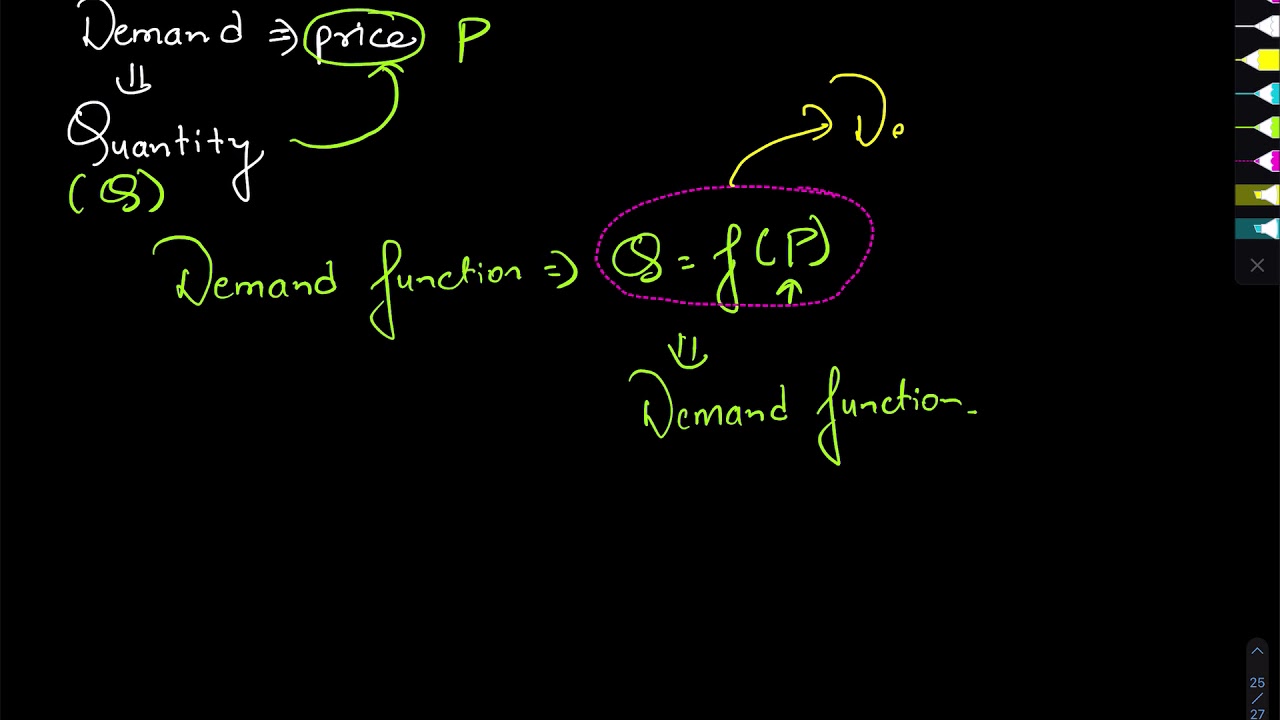 Demand ⇒ price P
⇓
Quantity
(Q)
De
Demand function ⇒ Q = f(P)
↑
⇓
Demand function.
25
/
27